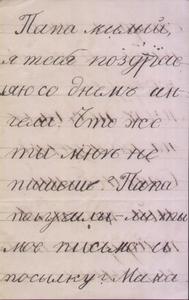 Папа милый,
я тебя поздрав
ляю со днемъ ан
гела. Что же
ты мнѣ не
пишешь. Папа
получилъ-ли ты
мое письмо и
посылку? Мама